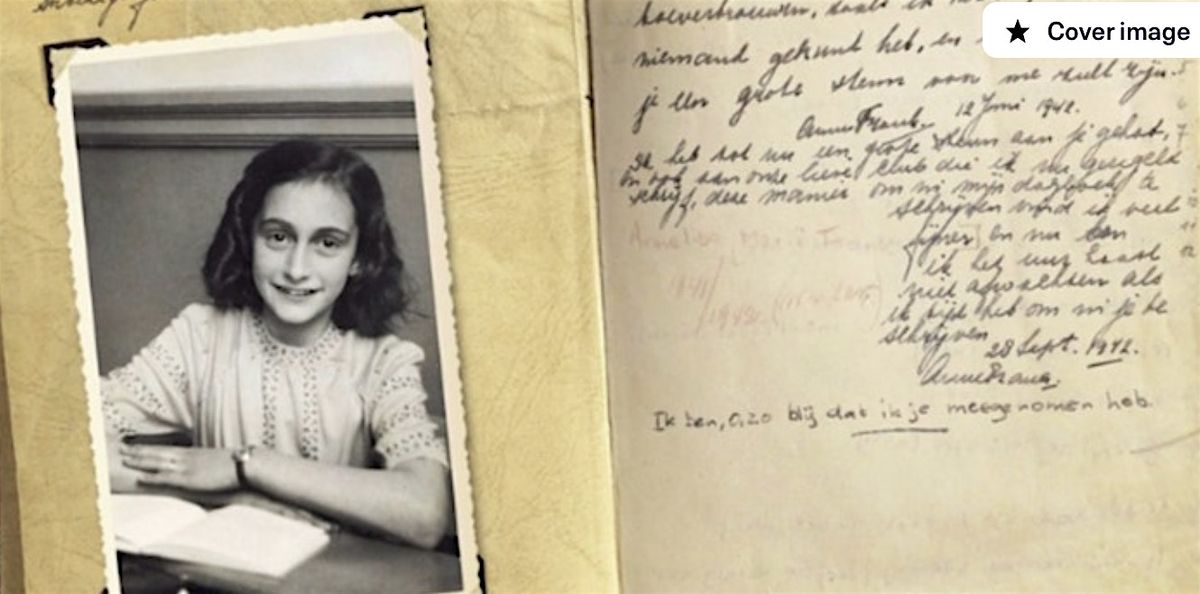 Cover image
toevertrouwen, zoals ik
niemand gekund heb, en
je een grote steun voor me zult zijn.
Anne Frank. 12 Juni 1942.
Ik heb tot nu een grote steun aan je gehad,
en ook aan onze lieve club die ik nu geregeld
schrijf, deze manier om in mijn dagboek te
schrijven vind ik veel
fijner en nu kan
ik het uur haast
niet afwachten als
ik tijd heb om in je te
schrijven.
28 Sept. 1942.
Anne Frank.
Ik ben, o, zo blij dat ik je meegenomen heb.